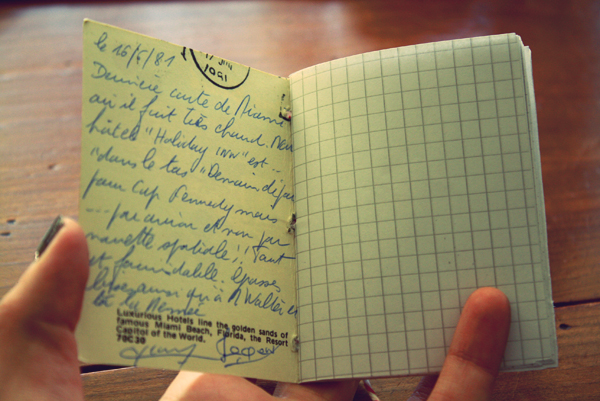 le 16/6/81
17 JUN
1981
Dernière carte de Miami
où il fait très chaud. Notre
hôtel "Holiday INN" est --
"dans le tas" Demain départ
pour Cap Kennedy mais
--- par avion et non par
navette spatiale!! Tout
est formidable.
qu'à Walter et
Luxurious Hotels line the golden sands of
famous Miami Beach, Florida, the Resort
Capitol of the World.
79C30